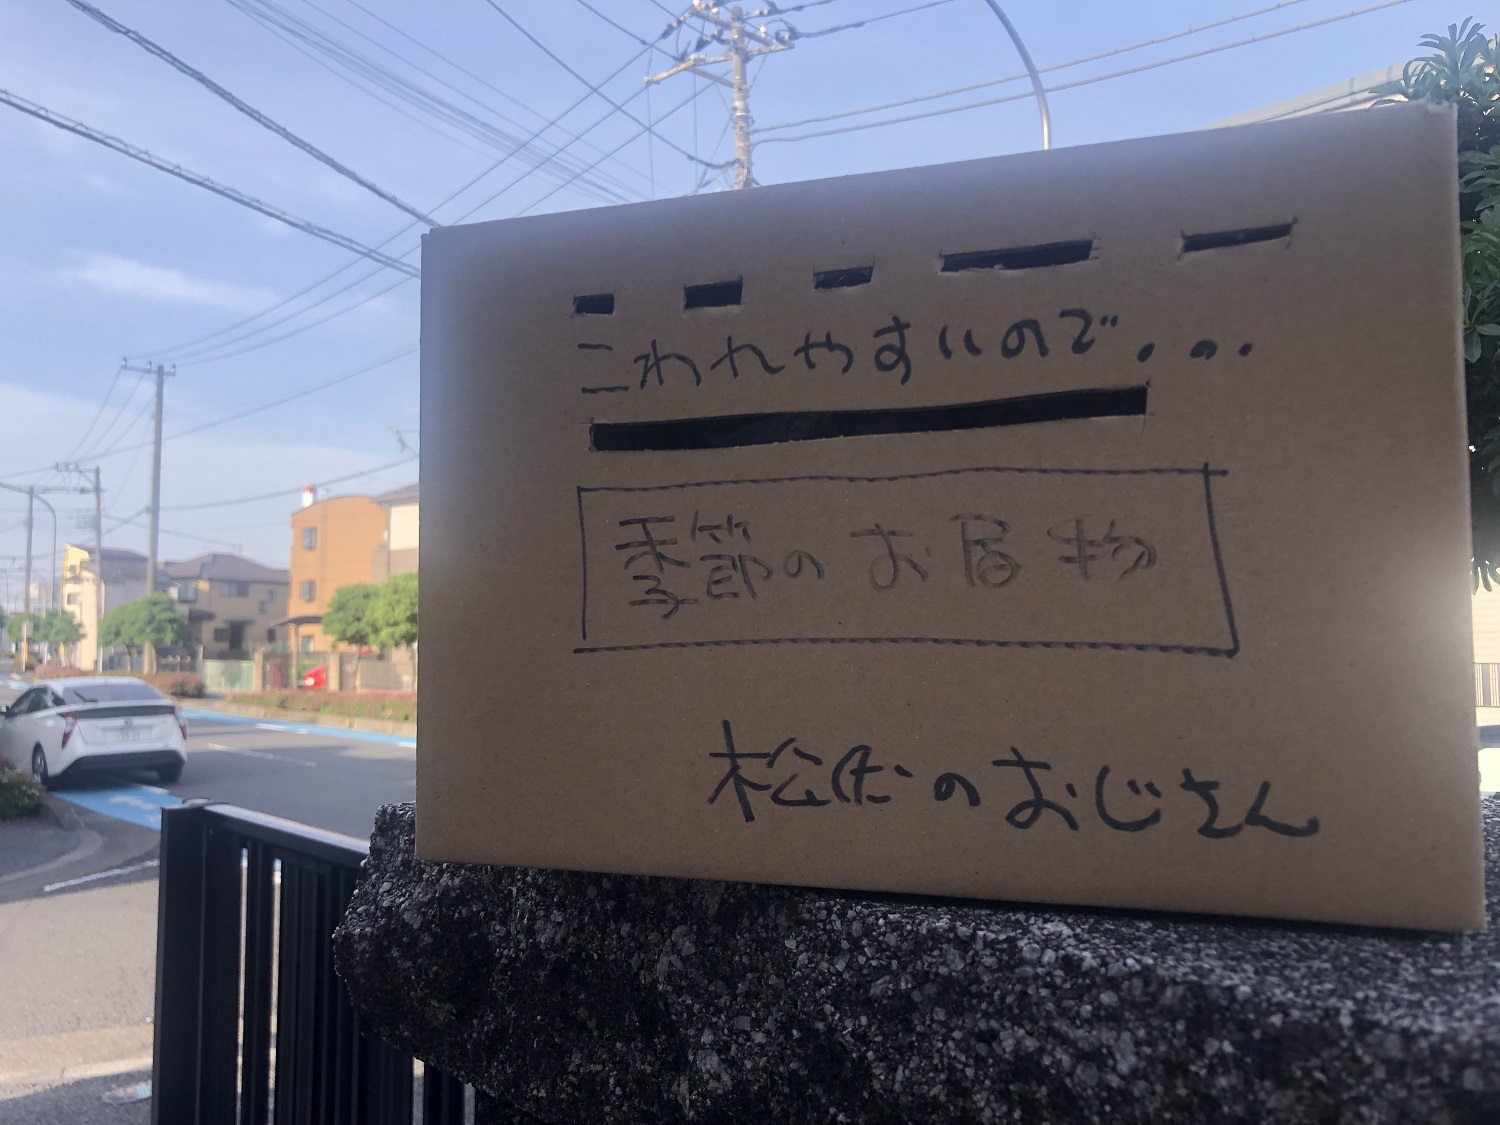 こわれやすいので...
季節のお届物
松伏のおじさん